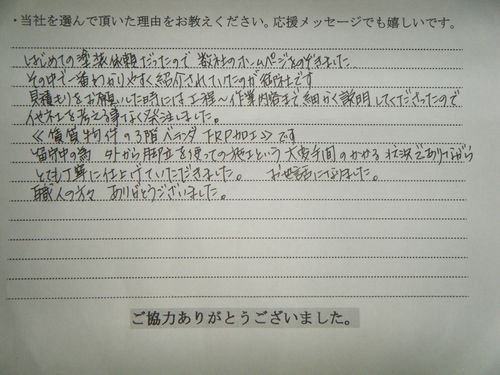 ・当社を選んで頂いた理由をお教えください。応援メッセージでも嬉しいです。
はじめての塗装依頼だったので 数社のホームページをのぞきました
その中で一番わかりやすく紹介されていたのが 御社です
見積もりをお願いした時には工程〜作業内容まで細かく説明してくださったので
他社を考える事なく発注しました。
≪賃貸物件の3階ベランダ FRP加工≫です
留守中の為 外から脚立を使っての施工という 大変手間のかかる状況でありながら
とても丁寧に仕上げていただきました。 お世話になりました。
職人の方々 ありがとうございました。
ご協力ありがとうございました。